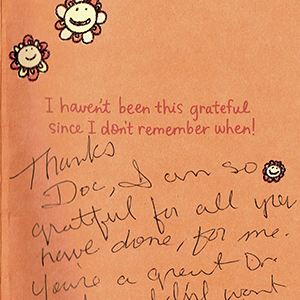 I haven't been this grateful
since I don't remember when!
Thanks
Doc, I am so
grateful for all you
have done, for me.
You're a great Doc
want